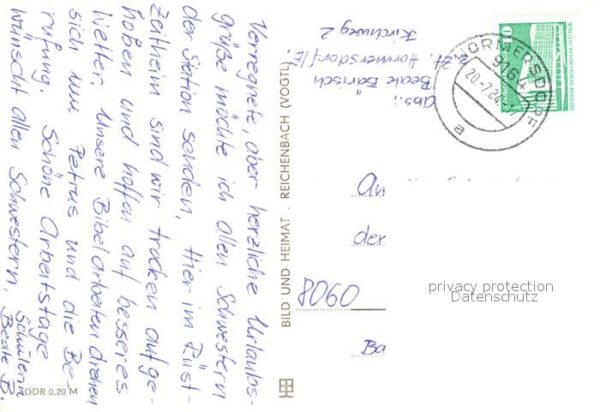 Verregnete, aber herzliche Urlaubs-
grüße möchte ich allen Schwestern
der Station senden. Hier im Rüst-
Zeitheim sind wir trocken aufge-
hoben und hoffen auf besseres
Wetter. Unsere Bibelarbeiten drehen
sich um Petrus und die Be-
rufung. Schöne Arbeitstage
wünscht allen Schwestern,
Schülerin
Beate B.
DDR 0,20 M
BILD UND HEIMAT REICHENBACH (VOGTL)
Abs.:
Beate
z.Zt. Hormersdorf/E
Kirchweg 2
HORMERSDORF
9164
20.-7.84
a
10
DEUTSCHE DEMOKRATISCHE REPUBLIK
An
der
8060
Ba
privacy protection
Datenschutz